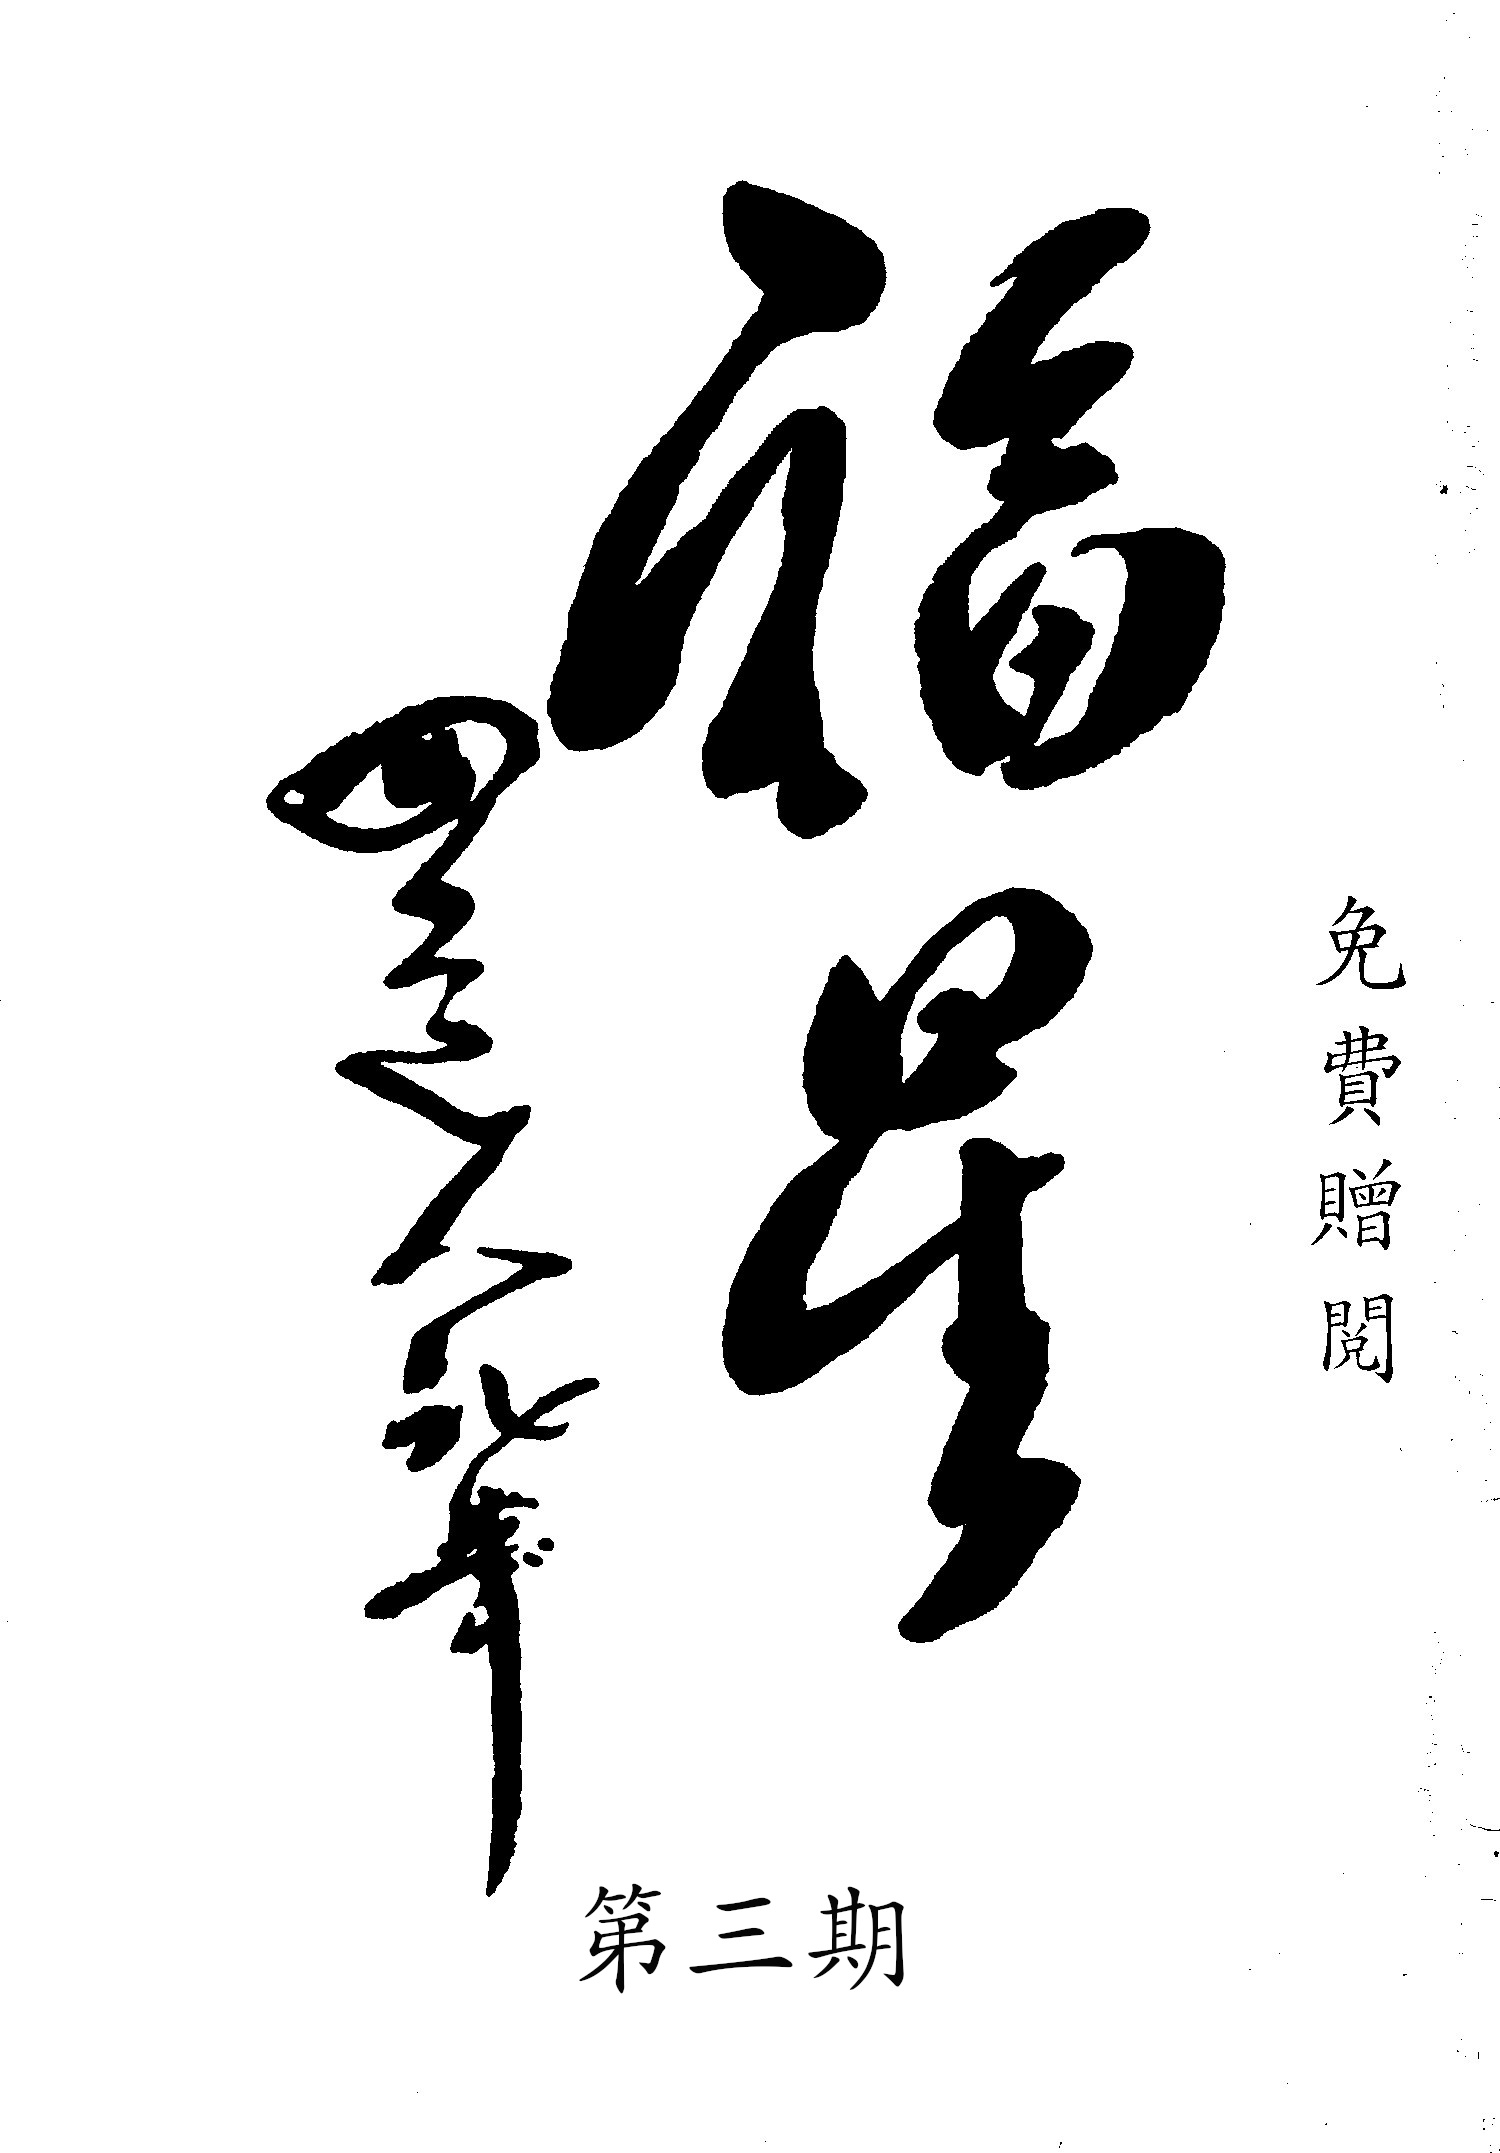 免費贈閱
福星
第三期